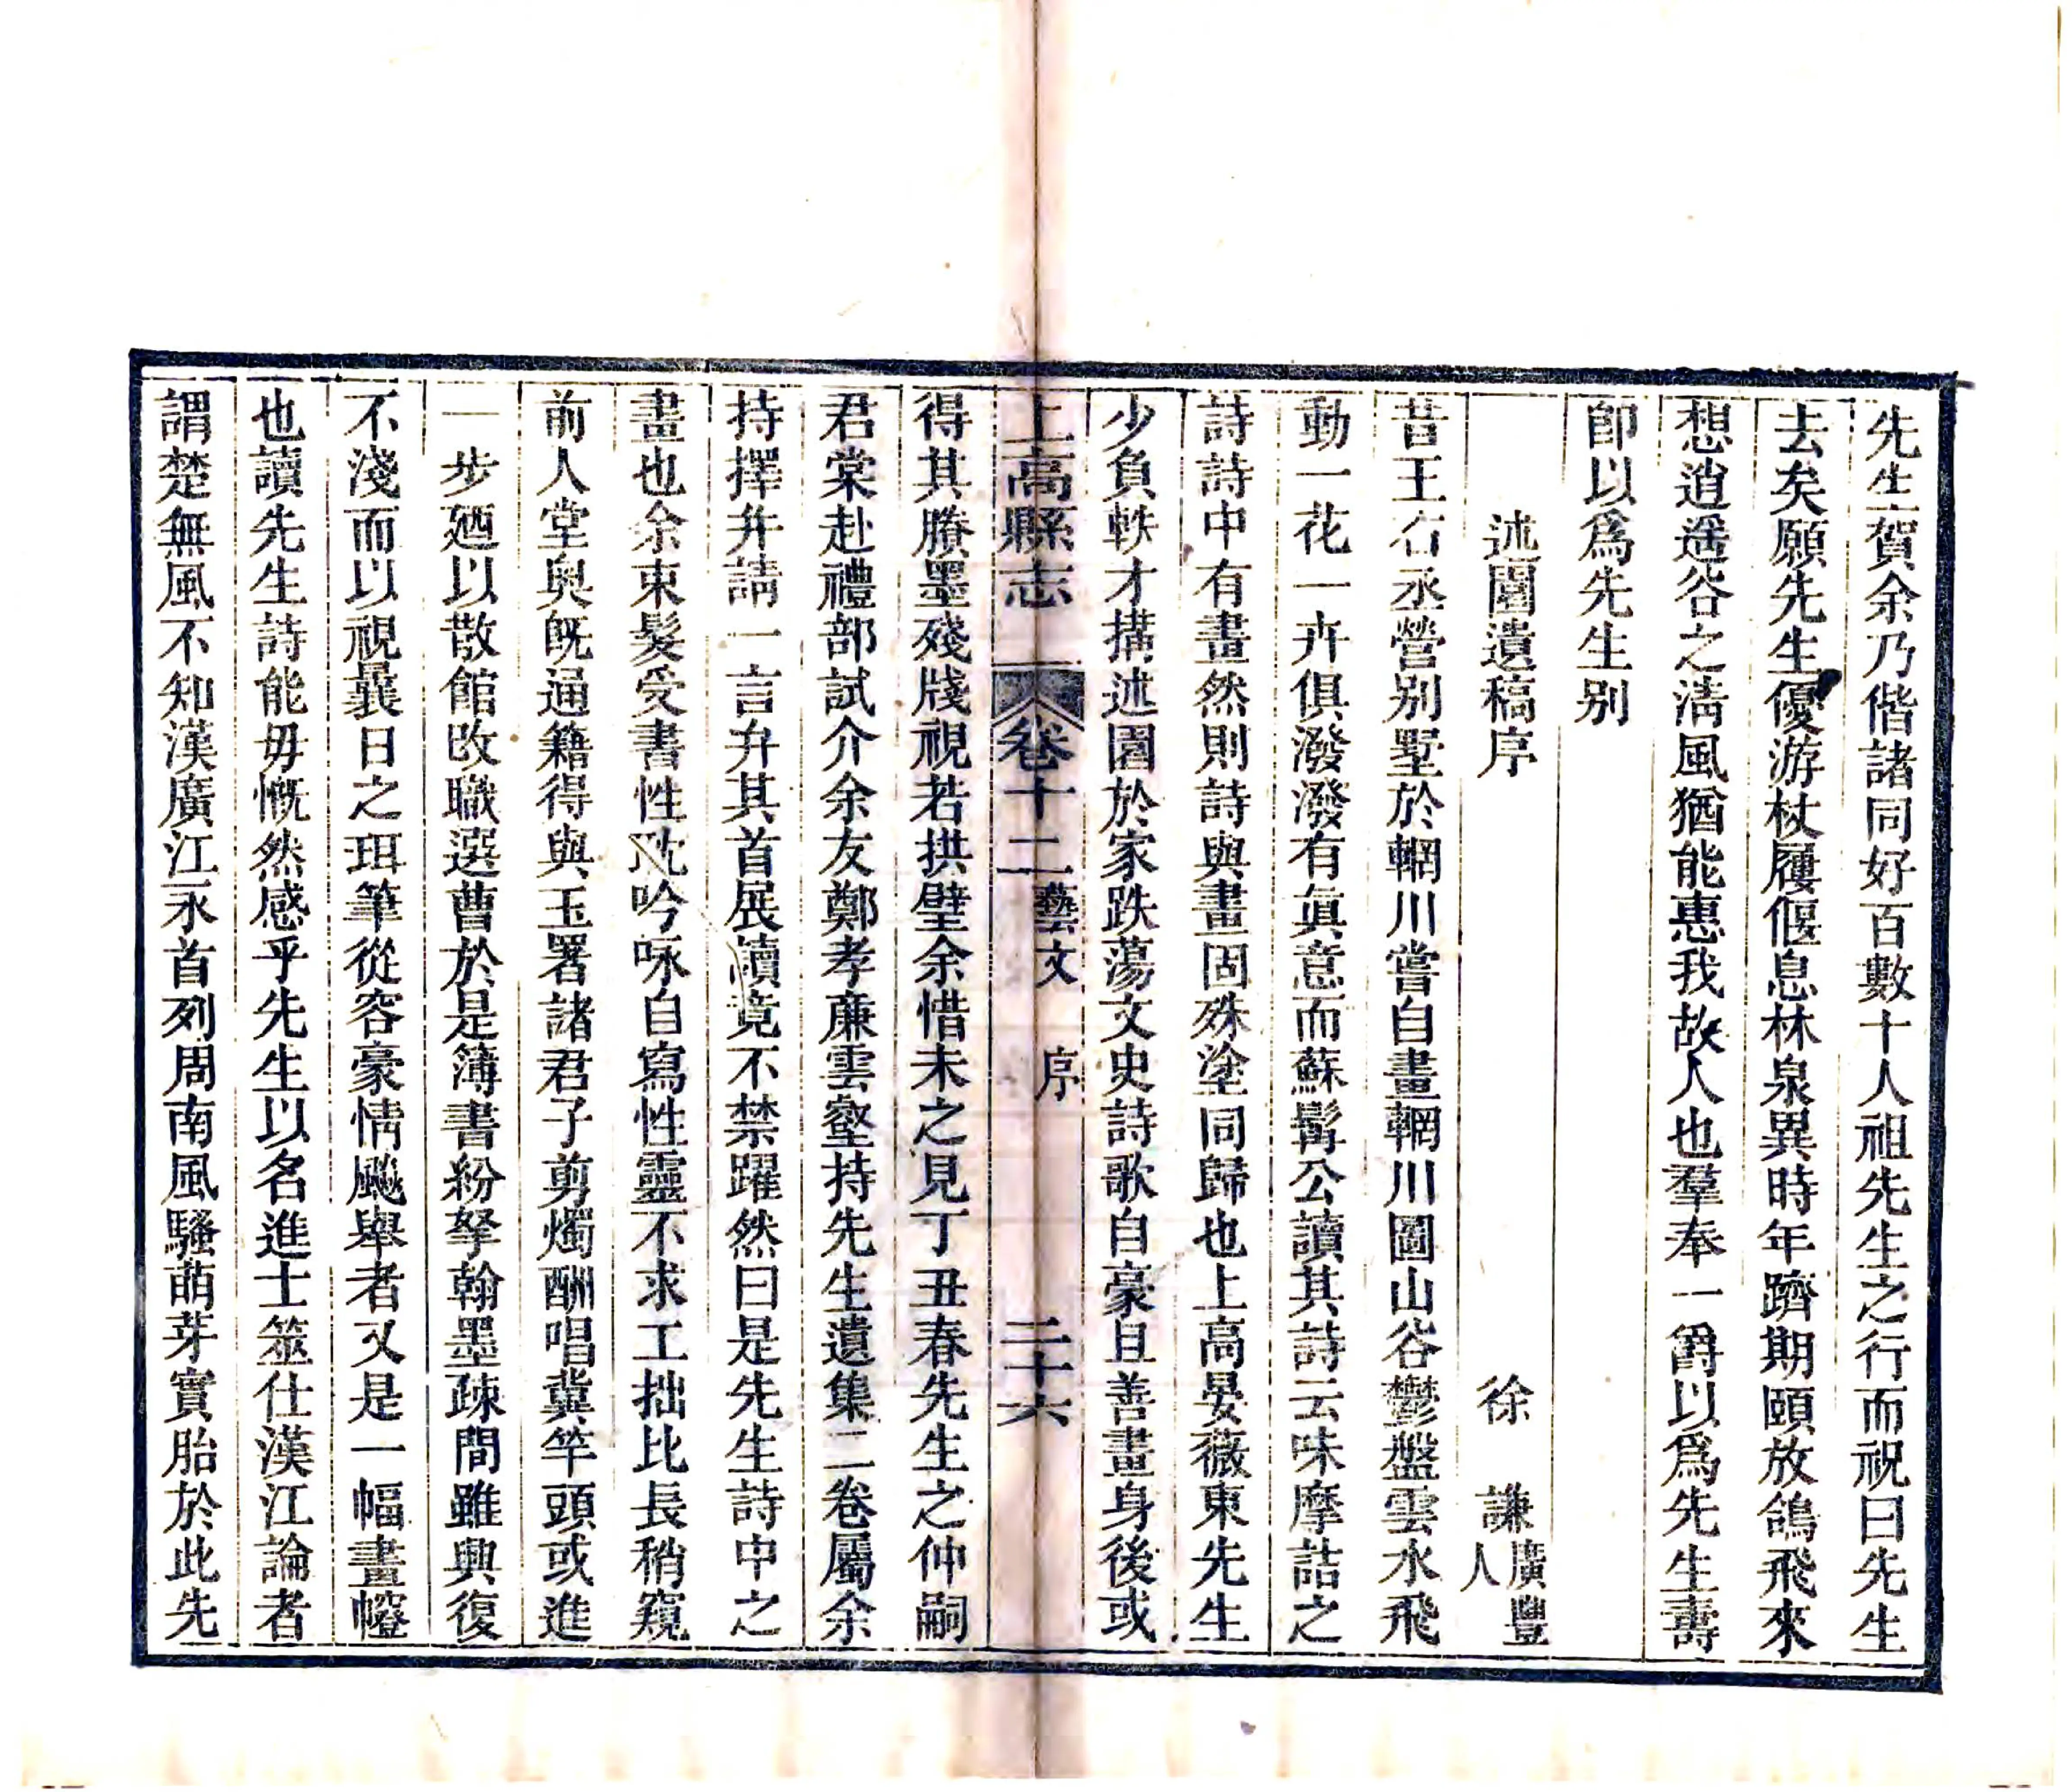 先生賀余乃偕諸同好百數十人祖先生之行而祝曰先生
去矣願先生優游杖履偃息林泉異時年躋期頤放鴿飛來
想逍遥谷之淸風猶能惠我故人也羣奉一爵以爲先生壽
卽以爲先生别
述園遺稿序 徐 謙廣豐人
昔王右丞營别墅於輞川嘗自畫輞川圖山谷鬱盤雲水飛
動一花一卉俱潑潑有眞意而蘇髯公讀其詩云味摩詰之
詩詩中有畫然則詩與畫固殊塗同歸也上高晏薇東先生
少負軼才搆述園於家跌蕩文史詩歌自豪且善畫身後或
上高縣志 卷十二 藝文 序 二十六
得其賸墨殘牋視若拱璧余惜未之見丁丑春先生之仲嗣
君棠赴禮部試介余友鄭孝廉雲壑持先生遺集二卷屬余
持擇弁請一言弁其首展讀竟不禁躍然曰是先生詩中之
畫也余束髮受書性躭吟咏自寫性靈不求工拙比長稍窺
前人堂奥旣通籍得與玉署諸君子剪燭酬唱冀竿頭或進
一步廼以散館改職選曹於是簿書紛拏翰墨疎間雖興復
不淺而以視曩日之珥筆從容豪情颷舉者又是一幅畫幢
也讀先生詩能毋慨然感乎先生以名進士筮仕漢江論者
謂楚無風不知漢廣江永首列周南風騷萌芽實胎於此先